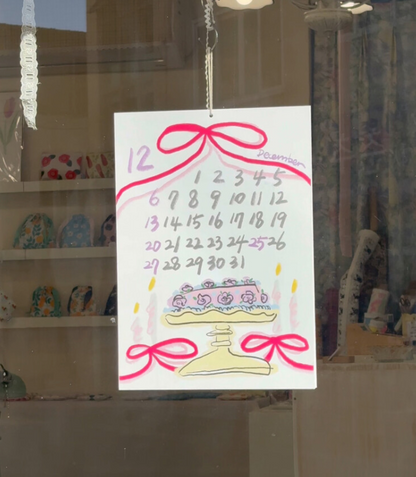 12
December
1 2 3 4 5
6 7 8 9 10 11 12
13 14 15 16 17 18 19
20 21 22 23 24 25 26
27 28 29 30 31